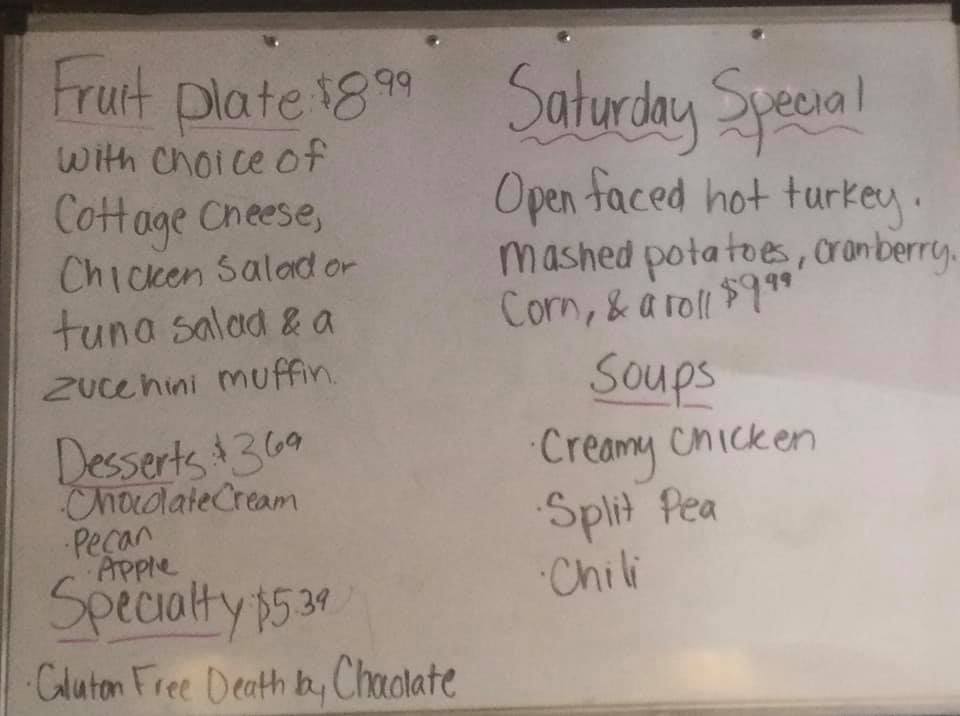 Fruit plate $8.99
with choice of
Cottage Cheese,
Chicken Salad or
tuna salad & a
zucchini muffin.
Desserts $3.69
·Chocolate Cream
·Pecan
·Apple
Specialty $5.39
·Gluton Free Death by Chaolate
Saturday Special
Open faced hot turkey.
Mashed potatoes, cranberry.
Corn, & a roll $9.99
Soups
·Creamy Chicken
·Split Pea
·Chili